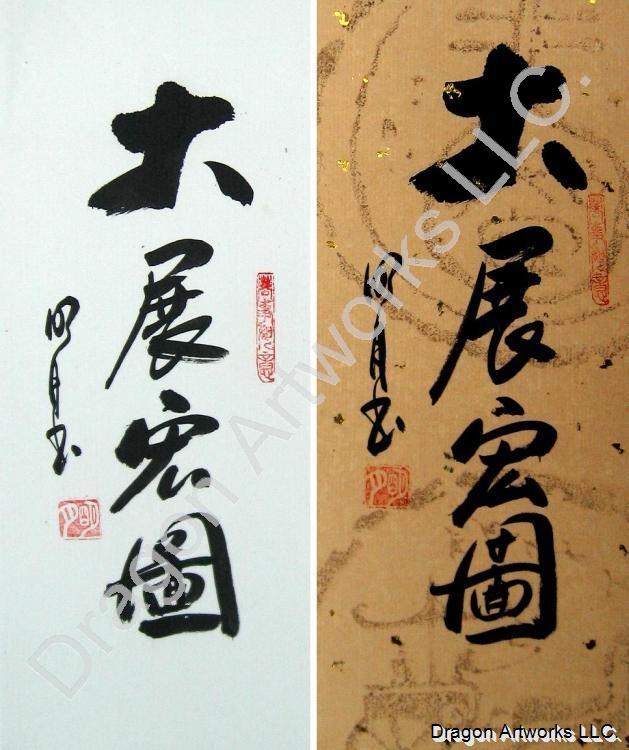 大展宏圖
明月书
大展宏圖
明月书
Dragon Artworks LLC.
Dragon Artworks LLC.